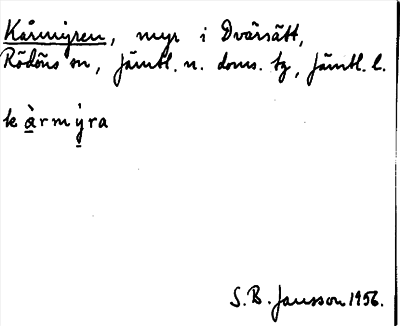 Kårmyren, myr i Dvärsätt,
Rödöns sn, Jämtl. n. doms. tg, Jämtl. l.
kàrmýra
S. B. Jansson 1956.